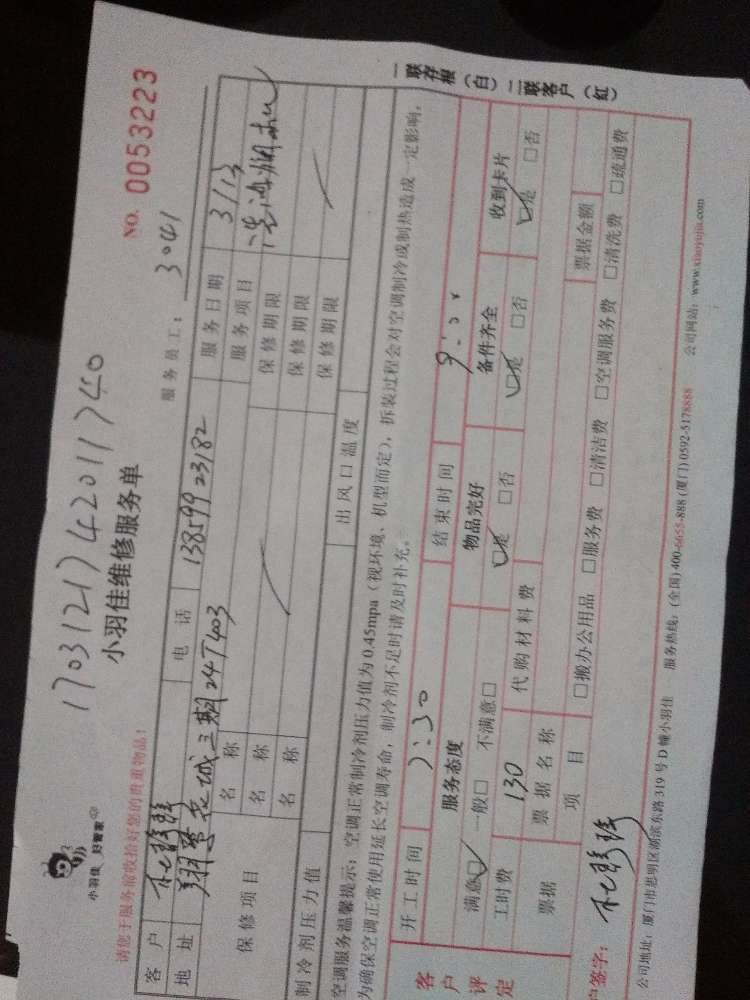 1703121742011740
NO. 0053223
小羽佳 好管家
小羽佳维修服务单
请您于服务前收拾好您的贵重物品!
服务员工: 3041
客户 电话 13859923182 服务日期 3/13
地址 三期24T403 服务项目
保修项目 名称 保修期限
名称 保修期限
名称 保修期限
制冷剂压力值 出风口温度
空调服务温馨提示:空调正常制冷剂压力值为0.45mpa(视环境、机型而定),拆装过程会对空调制冷或制热造成一定影响,
为确保空调正常使用延长空调寿命,制冷剂不足时请及时补充。
开工时间 7:30 结束时间 9:00
客户评定 服务态度 物品完好 备件齐全 收到卡片
满意☑ 一般□ 不满意□ ☑是 □否 ☑是 □否 ☑是 □否
工时费 130 代购材料费
票据 票据名称 票据金额
项目 □搬办公用品 □服务费 □清洁费 □空调服务费 □清洗费 □疏通费
户签字:
公司地址:厦门市思明区湖滨东路319号D幢小羽佳 服务热线:(全国)400-6655-888 (厦门)0592-5178888 公司网站:www.xiaoyujia.com
一联存根(白) 二联客户(红)